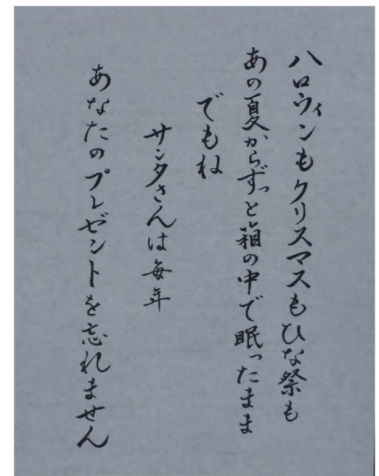 ハロウィンもクリスマスもひな祭も
あの夏からずっと箱の中で眠ったまま
でもね
サンタさんは毎年
あなたのプレゼントを忘れません